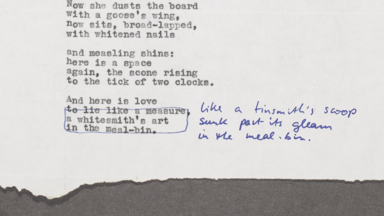 Now she dusts the board
with a goose's wing,
now sits, broad-lapped,
with whitened nails
and measling shins:
here is a space
again, the scone rising
to the tick of two clocks.
And here is love
to lie like a measure,
a whitesmith's art
in the meal-bin.
like a tinsmith's scoop
sunk past its gleam
in the meal-bin.